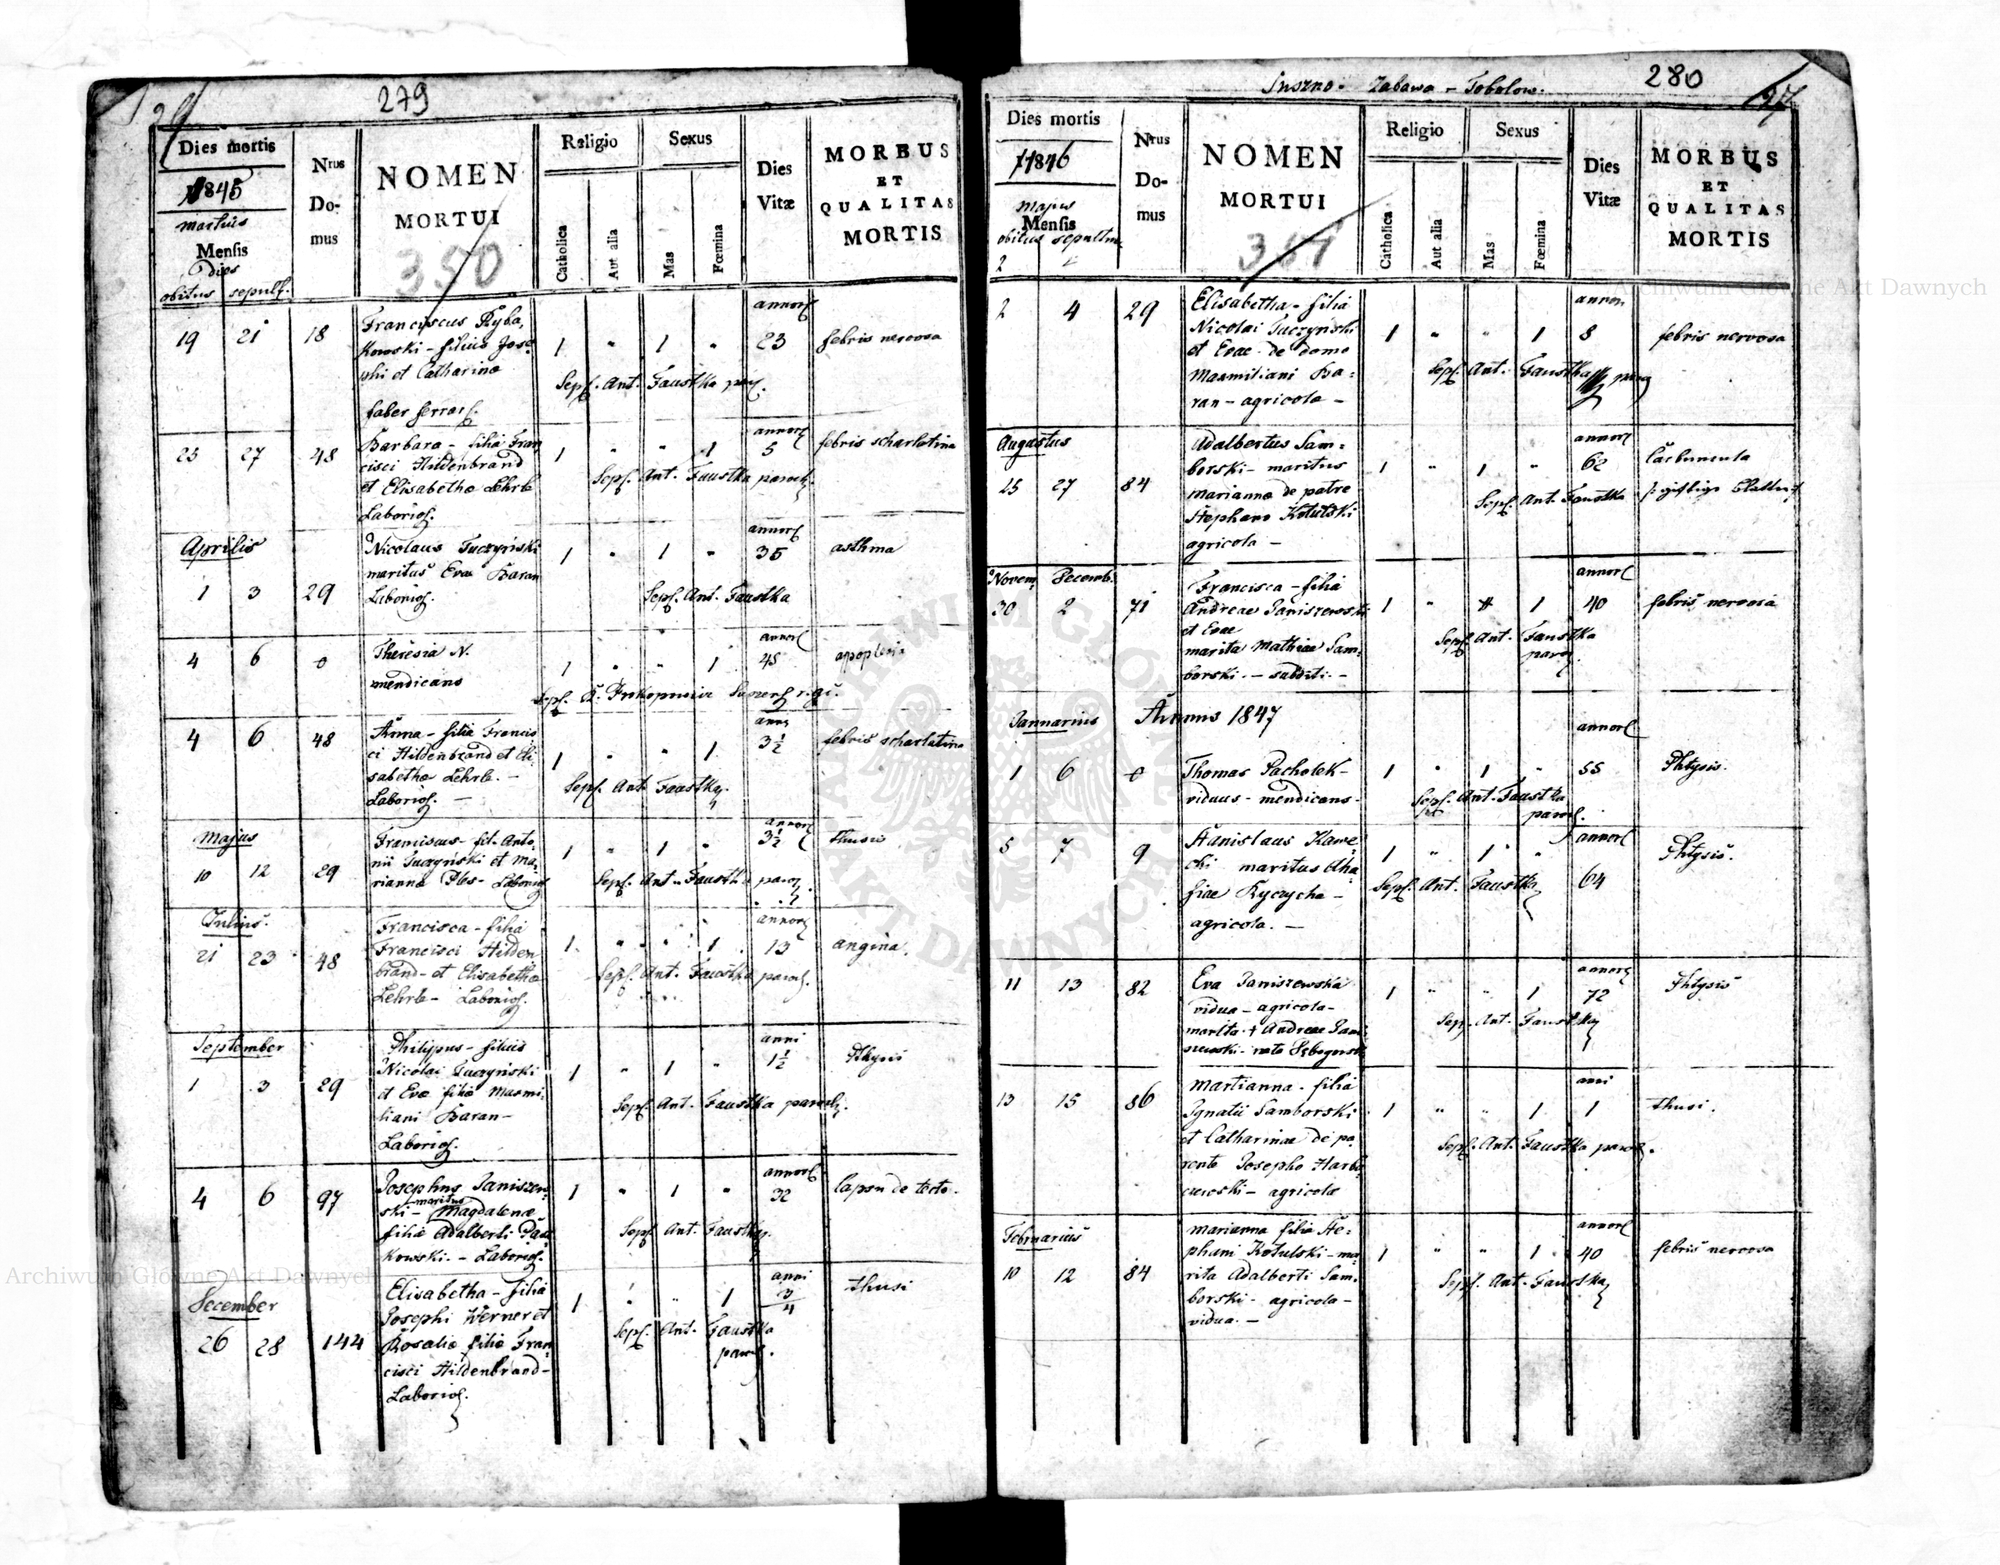 279
Dies mortis
1845
martius
Mensis
Dies
obitus sepult.
Nrus
Do-
mus
NOMEN
MORTUI
350
Religio
Catholica
Aut alia
Sexus
Mas
Fœmina
Dies
Vitæ
MORBUS
ET
QUALITAS
MORTIS
19 21 18 Franciscus Ryba,
kowski - filius Jose
phi et Catharina
faber ferrar.
1 " 1 "
annor.
23
febris nervosa
Sep. Ant. Faustka par.
25 27 48 Barbara - filia Fran
cisci Hildenbrand
et Elisabetha Lehrle
Laborios.
1 " " 1
annor.
5
febris scharlatina
Sep. Ant. Faustka paroch.
Aprilis
1 3 29
Nicolaus Tuczyński
maritus Evae Baran
Laborios.
1 " 1 "
annor.
35
asthma
Sep. Ant. Faustka
4 6 0 Theresia N.
mendicans
1 " " 1
annor.
45
apoplexia
4 6 48 Anna - filia Francis
ci Hildenbrand et Eli
sabetha Lehrle. -
Laborios. -
1 " " 1
3 1/2
febris scharlatina
Sep. Ant. Faustka
Majus
10 12 29
Franciscus - fil. Anto
nii Tuczyński et Ma,
rianna Ples - Laborios
1 " 1 "
annor.
3 1/2
thusis
Sep. Ant. Faustka paroch.
Julius.
21 23 48
Francisca - filia
Francisci Hilden
brand - et Elisabetha
Lehrle - Laborios.
1 " " 1
annor.
13
angina.
Sep. Ant. Faustka paroch.
September
1 3 29
Philipus - filius
Nicolai Tuczyński
et Eva filia Maxmi,
liani Baran -
Laborios.
1 " 1 "
anni
1 1/2
Sep. Ant. Faustka paroch.
4 6 97 Josephus Janiszew
ski - maritus Magdalenæ
filia Adalberti
kowski. - Laborios.
1 " 1 "
annor.
32
lapsu de tecto.
Sep. Ant. Faustka
December
26 28 144
Elisabetha - filia
Josephi Werner et
Rosalia filia Fran
cisci Hildenbrand -
Laborios.
1 " " 1
anni
3/4
thusi
Sep. Ant. Faustka
paroch.
Suszno - Zabawa - Tobolow.
280
Dies mortis
1846
majus
Mensis
obitus sepultu
2
Nrus
Do-
mus
NOMEN
MORTUI
351
Religio
Catholica
Aut alia
Sexus
Mas
Fœmina
Dies
Vitæ
MORBUS
ET
QUALITAS
MORTIS
2 4 29 Elisabetha - filia
Nicolai Tuczyński
et Evae de domo
Maxmiliani Ba-
ran - agricola -
1 " " 1
annor.
8
febris nervosa
Sep. Ant. Faustka paroch
Augustus
25 27 84
Adalbertus Sam-
borski - maritus
marianna de patre
Stephano Kotulski
agricola -
1 " 1 "
annor.
62
Carbuncula
Sep. Ant. Faustka
Novem. Decemb.
30 2 71
Francisca - filia
Andreae Janiszewski
et Evae
marita Mathiae Sam-
borski. - subditi. -
1 " 1
annor.
40
febris nervosa
Sep. Ant. Faustka
paroch
Januarius Annus 1847
1 6 0 Thomas Pacholek -
viduus - mendicans -
1 " 1 "
annor.
55
Phtysis.
Sep. Ant. Faustka
paroch.
5 7 9 Stanislaus Kawe
cki maritus Aha
fiae Kyczycha -
agricola. -
1 " 1 "
annor.
64
Phtysis.
Sep. Ant. Faustka
11 13 82 Eva Janiszewska
vidua - agricola -
marita + Andreae Jani
szewski - nata
1 " " 1
annor.
72
Phtysis
Sep. Ant. Faustka
13 15 86 Martianna - filia
Ignatii Samborski
et Catharinae de pa
rente Josepho
agricola
1 " " 1
anni
1
thusi.
Sep. Ant. Faustka paroch.
Februarius
10 12 84
Marianna filia Ste-
phani Kotulski - ma
rita Adalberti Sam-
borski - agricola -
vidua. -
1 " " 1
annor.
40
febris nervosa
Sep. Ant. Faustka
Archiwum Główne Akt Dawnych
Archiwum Główne Akt Dawnych
ARCHIWUM GŁÓWNE AKT DAWNYCH